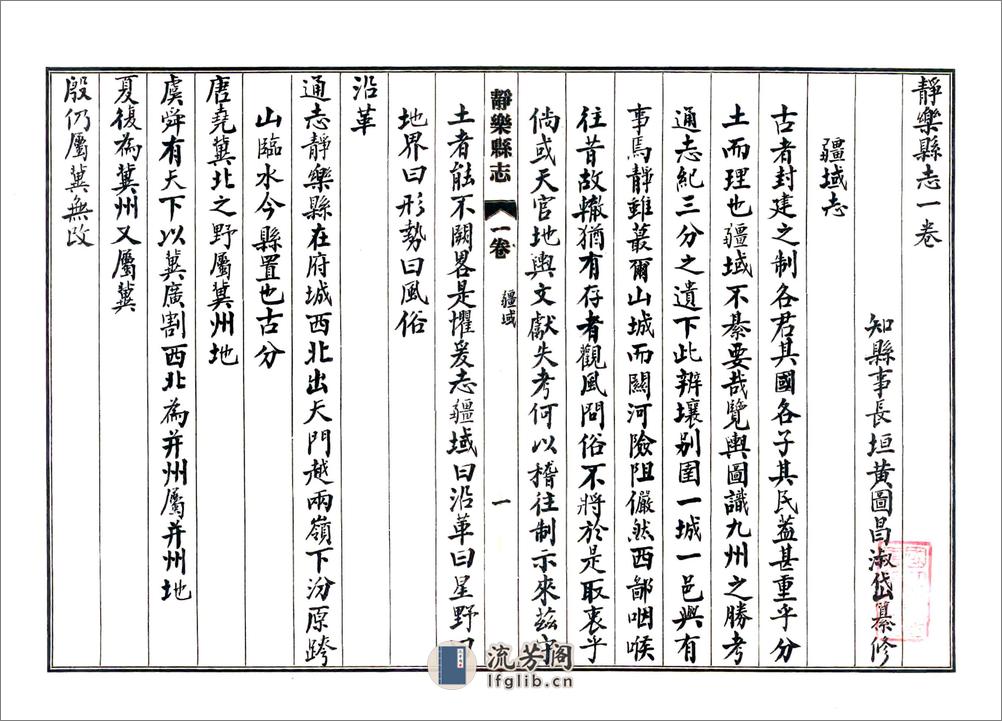 靜樂縣志一卷
知縣事長垣黃圖昌淑岱纂修
疆域志
古者封建之制各君其國各子其民蓋甚重乎分
土而理也疆域不綦要哉覽輿圖識九州之勝考
通志紀三分之遺下此辨壤別圉一城一邑興有
事焉靜雖蕞爾山城而關河險阻儼然西鄙咽喉
往昔故轍猶有存者觀風問俗不將於是取衷乎
倘或天官地輿文獻失考何以稽往制示來茲守
靜樂縣志
一卷
疆域
一
土者能不闕畧是懼爰志疆域曰沿革曰星野曰
地界曰形勢曰風俗
沿革
通志靜樂縣在府城西北出天門越兩嶺下汾原跨
山臨水今縣置也古分
唐堯冀北之野屬冀州地
虞舜有天下以冀廣割西北為并州屬并州地
夏復為冀州又屬冀
殷仍屬冀無改
流芳閣
lfglib.cn